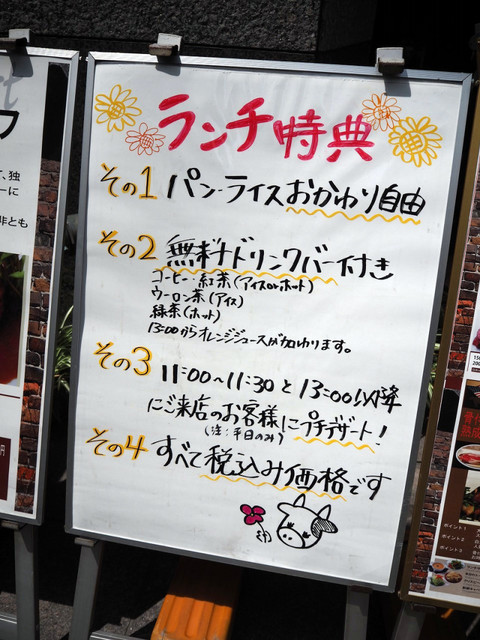 ランチ特典
その1 パン・ライスおかわり自由
その2 無料ドリンクバー付き
コーヒー・紅茶(アイスorホット)
ウーロン茶(アイス)
緑茶(ホット)
13:00からオレンジジュースが加わります。
その3 11:00〜11:30と13:00以降
にご来店のお客様にプチデザート!
(注:平日のみ)
その4 すべて税込み価格です